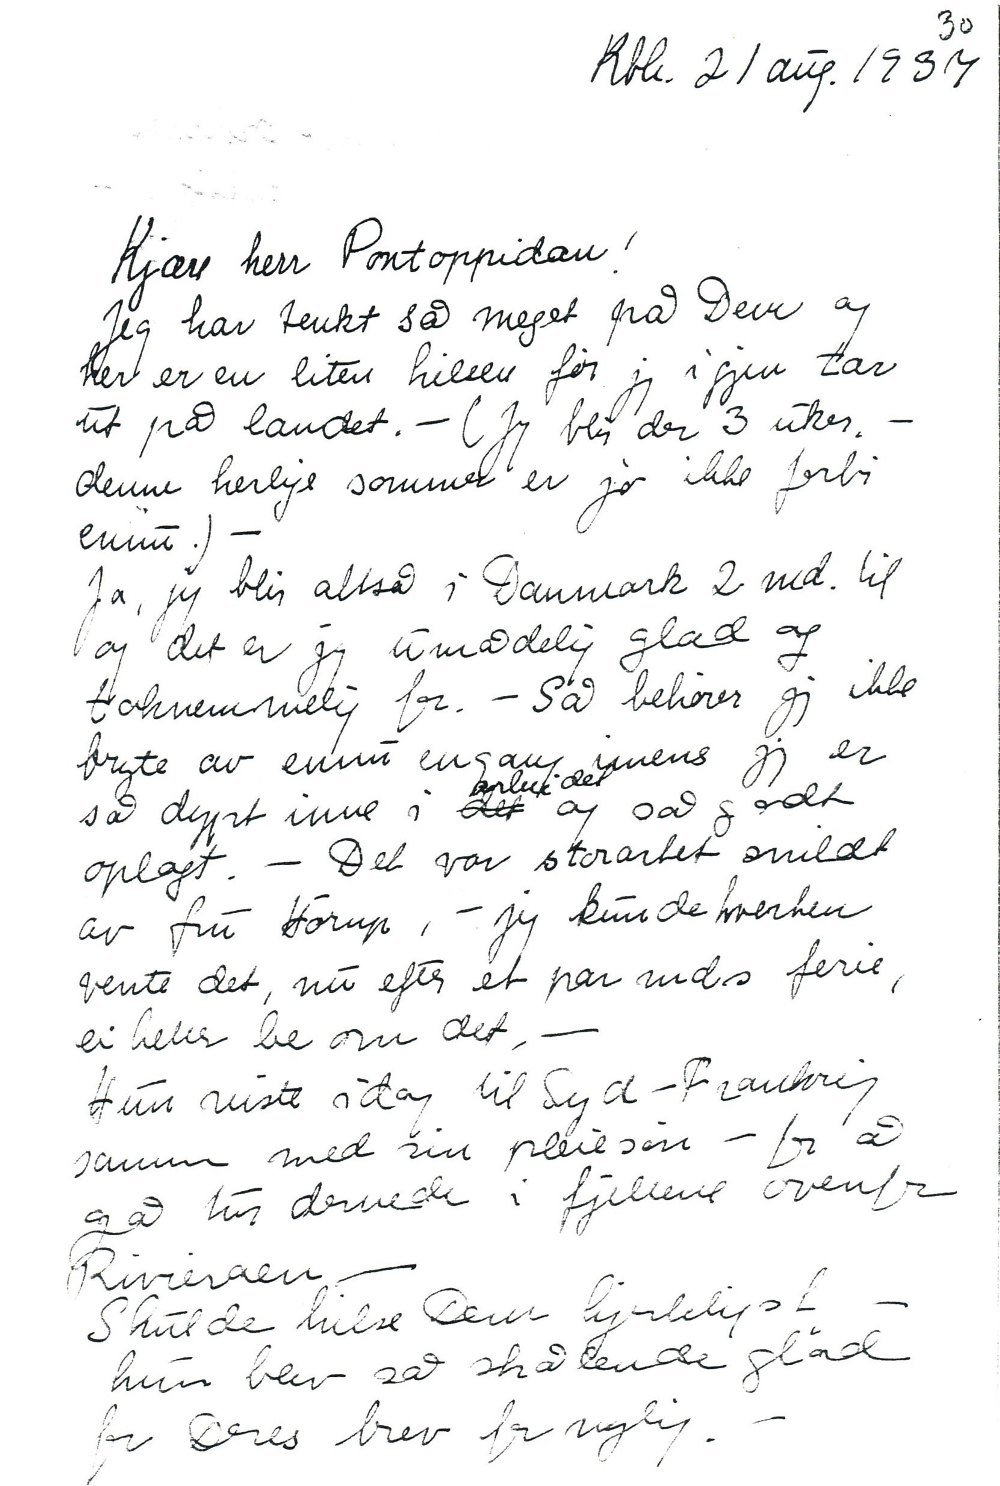 30
Kbh. 21 aug. 1937
Kjære herr Pontoppidan!
Jeg har tenkt så meget på Dem og
her er en liten hilsen før jeg igjen tar
ut på landet. – (Jeg blir der 3 uker. –
denne herlige sommer er jo ikke forbi
ennu.) –
Ja, jeg blir altså i Danmark 2 md. til
og det er jeg umådelig glad og
taknemmelig for. – Så behøver jeg ikke
bryte av ennu engang imens jeg er
så dypt inne i det arbeidet og så godt
oplagt. – Det var storartet snildt
av fru Hørup, – jeg kunde hverken
vente det, nu efter et par mds ferie,
ei heller be om det, –
Hun reiste idag til Syd-Frankrig
sammen med sin pleiesøn – for å
gå tur dernede i fjellene ovenfor
Rivieraen. –
Skulde hilse Dem hjerteligst –
hun blev så strålende glad
for Deres brev for nylig. –